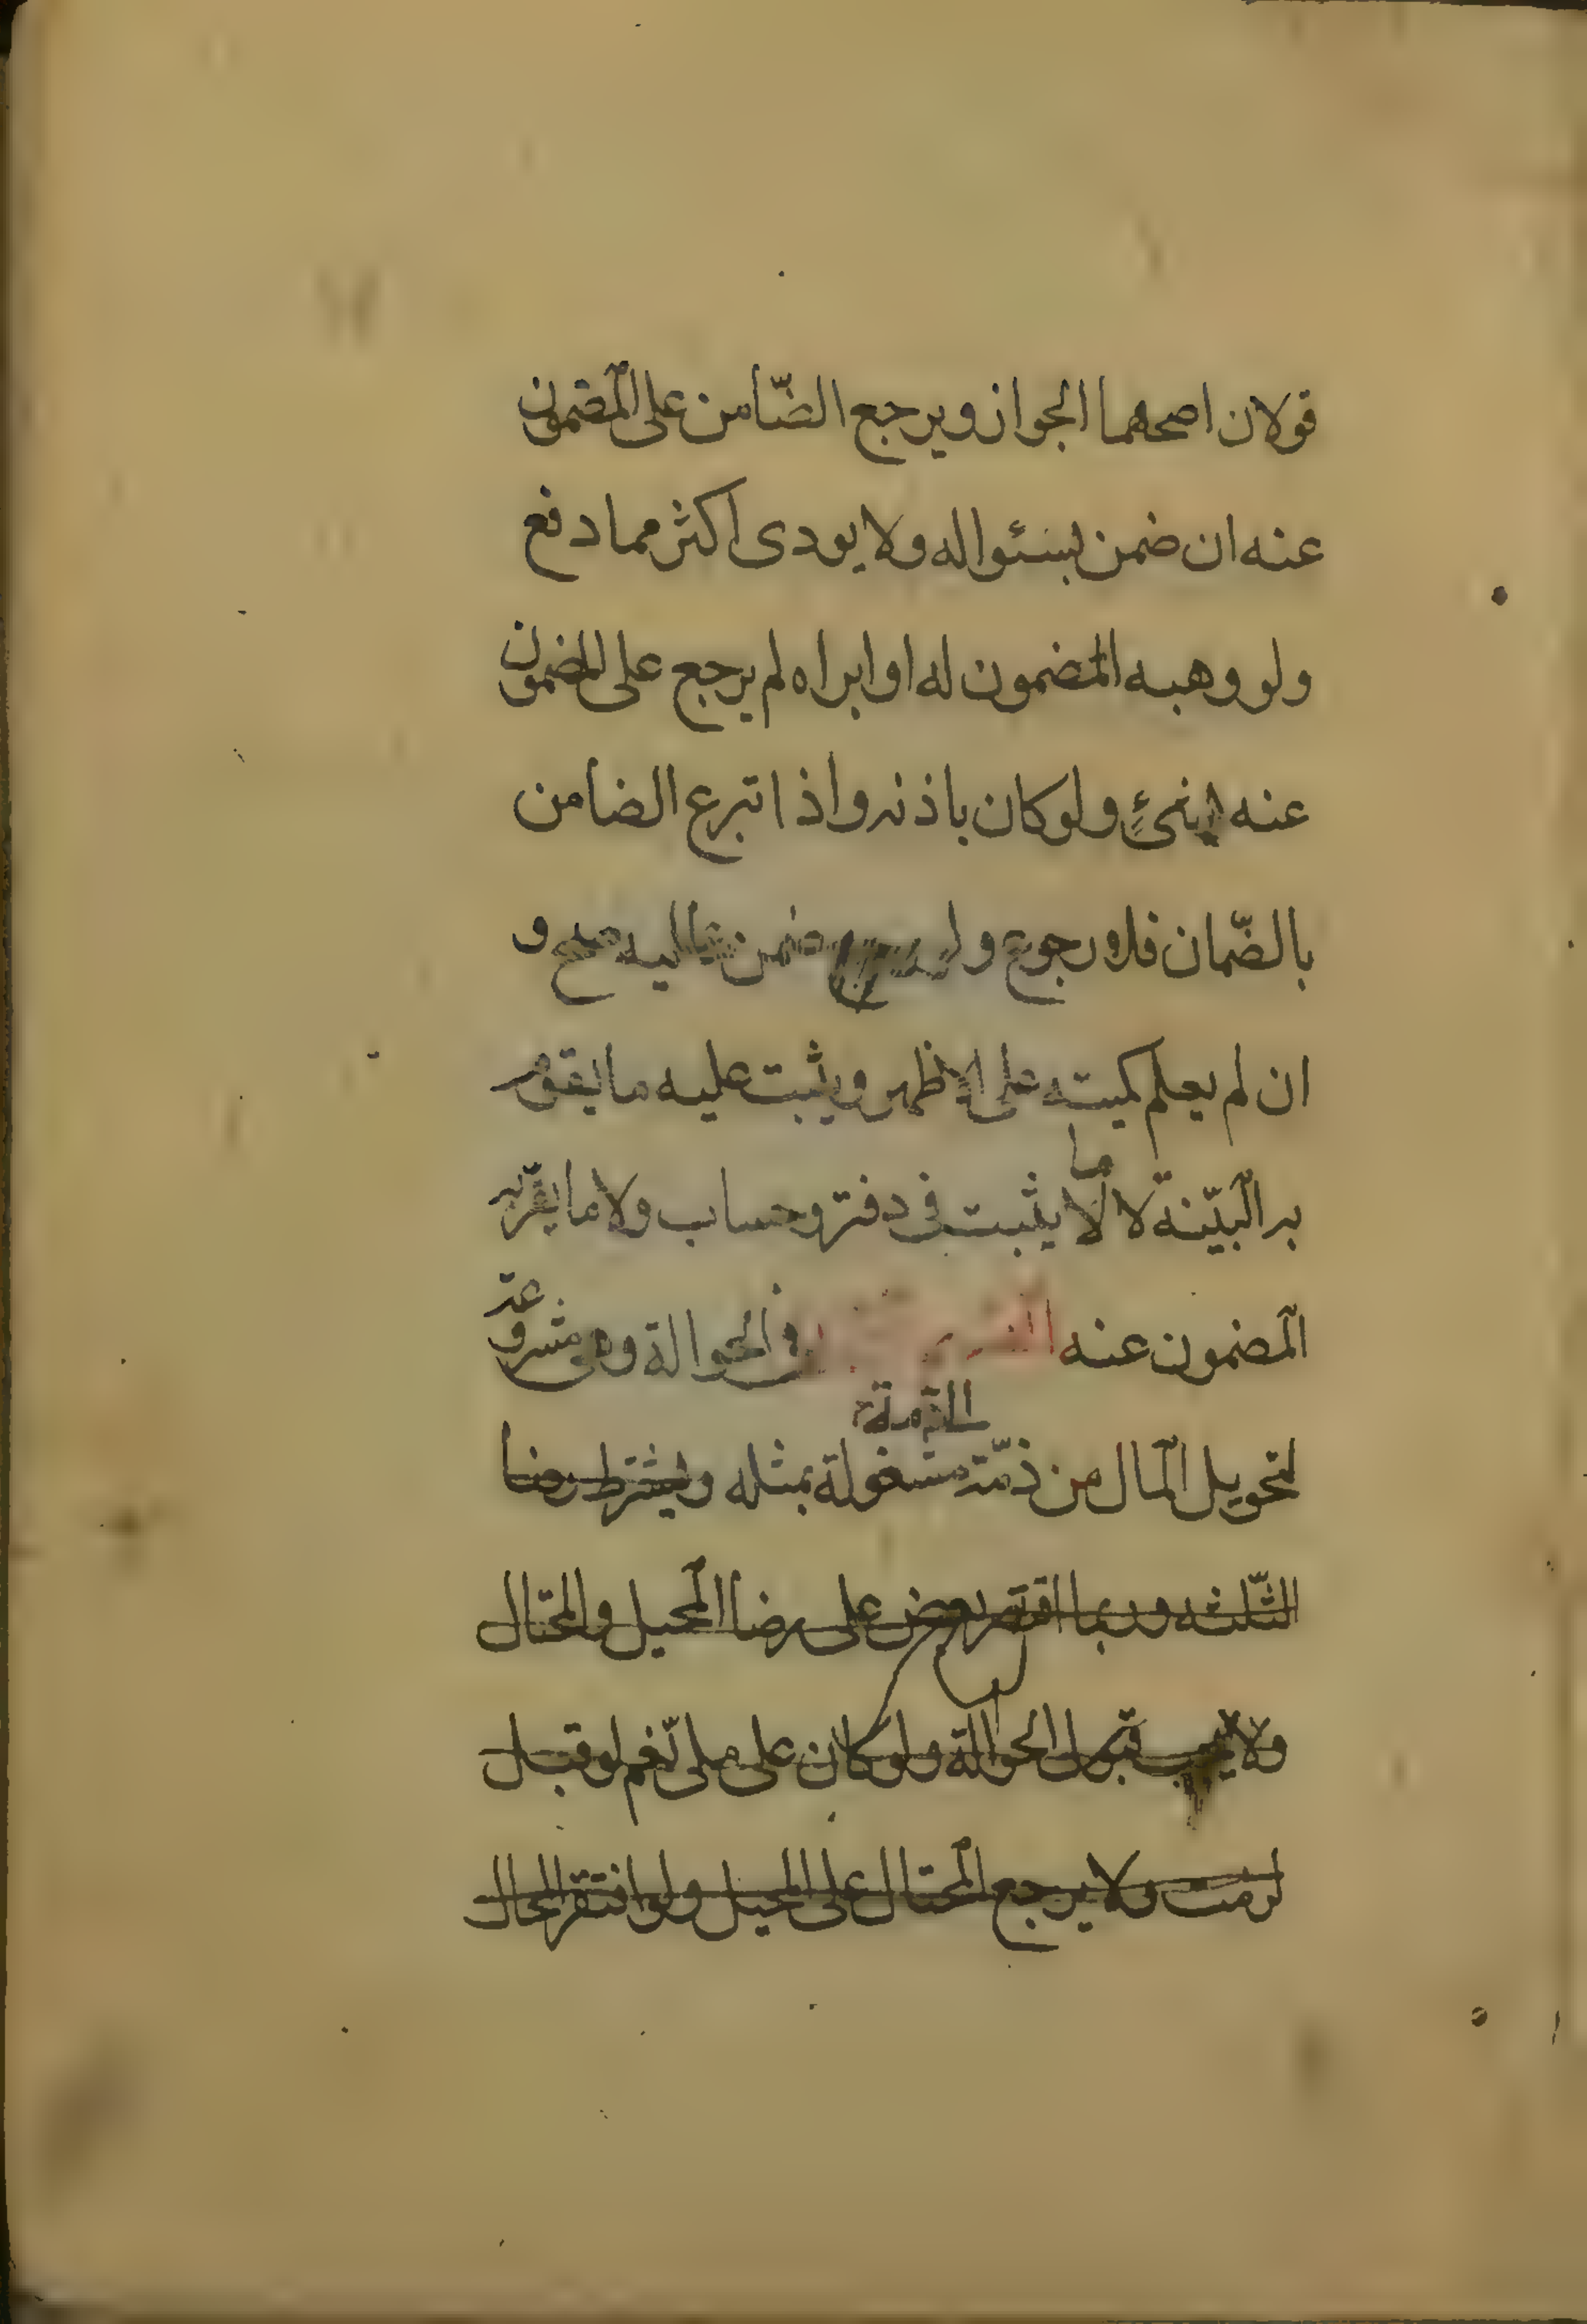 قولان اصحهما الجواز ويرجع الضّامن على المضمون
عنه ان ضمن بسئواله ولا يودى اكثر مما دفع
ولو وهبه المضمون له او ابراه لم يرجع على المضمون
عنه بشئ ولو كان باذنه واذا تبرع الضامن
بالضّمان فلا رجوع و ضمن ما عليه صح و
ان لم يعلم كميته على الاظهر ويثبت عليه ما يقوم
به البيّنة لا ما يثبت فى دفتر وحساب ولا ما يقرّ به
المضمون عنه القسم فى الحوالة وهى مشروعة
لتحويل المال من ذمّة الى ذمة مشغولة بمثله ويشترط رضا
الثلثه وربما اقتصر بعض على رضا المحيل والمحتال
ولا يجب قبول الحوالة ولو كان على ملى نعم لو قبل
لزمت ولا يرجع المحتال على المحيل ولو افتقر المحال